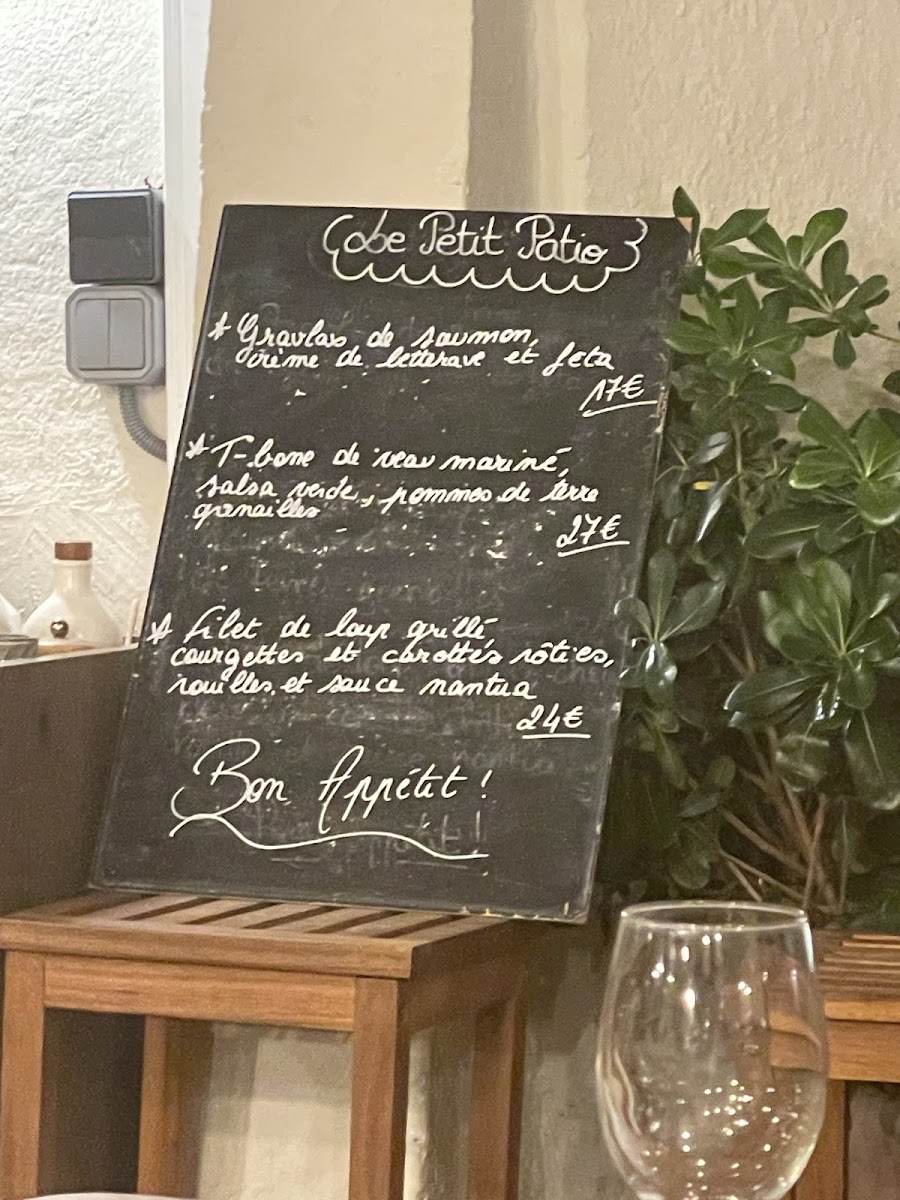 Le Petit Patio
* Gravlax de saumon,
crème de betterave et feta
17€
* T-bone de veau mariné,
salsa verde, pommes de terre
grenailles
27€
* Filet de loup grillé,
courgettes et carottes rôties,
rouilles et sauce nantua
24€
Bon Appétit !